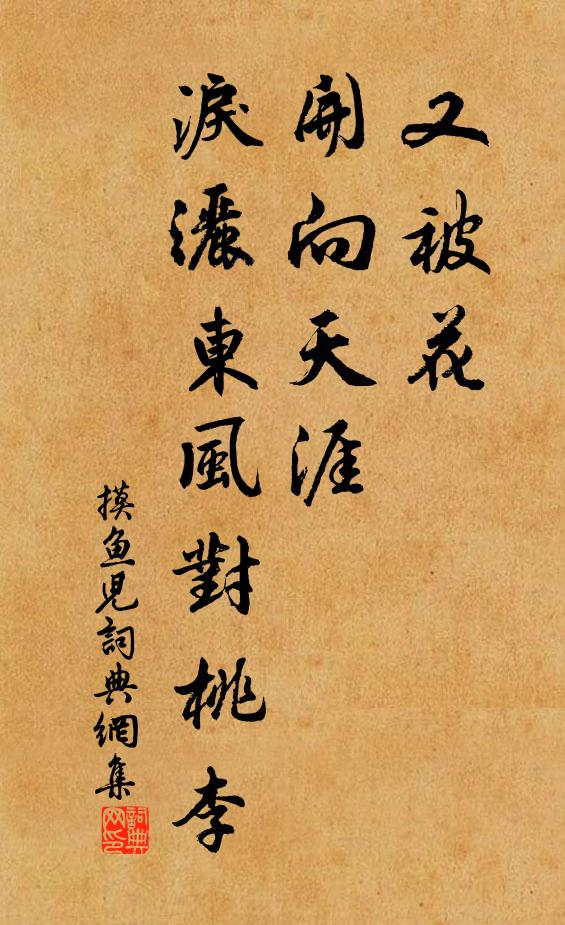 又被花
開向天涯
淚灑東風對桃李
摸魚児詞典網集
詞典
网印